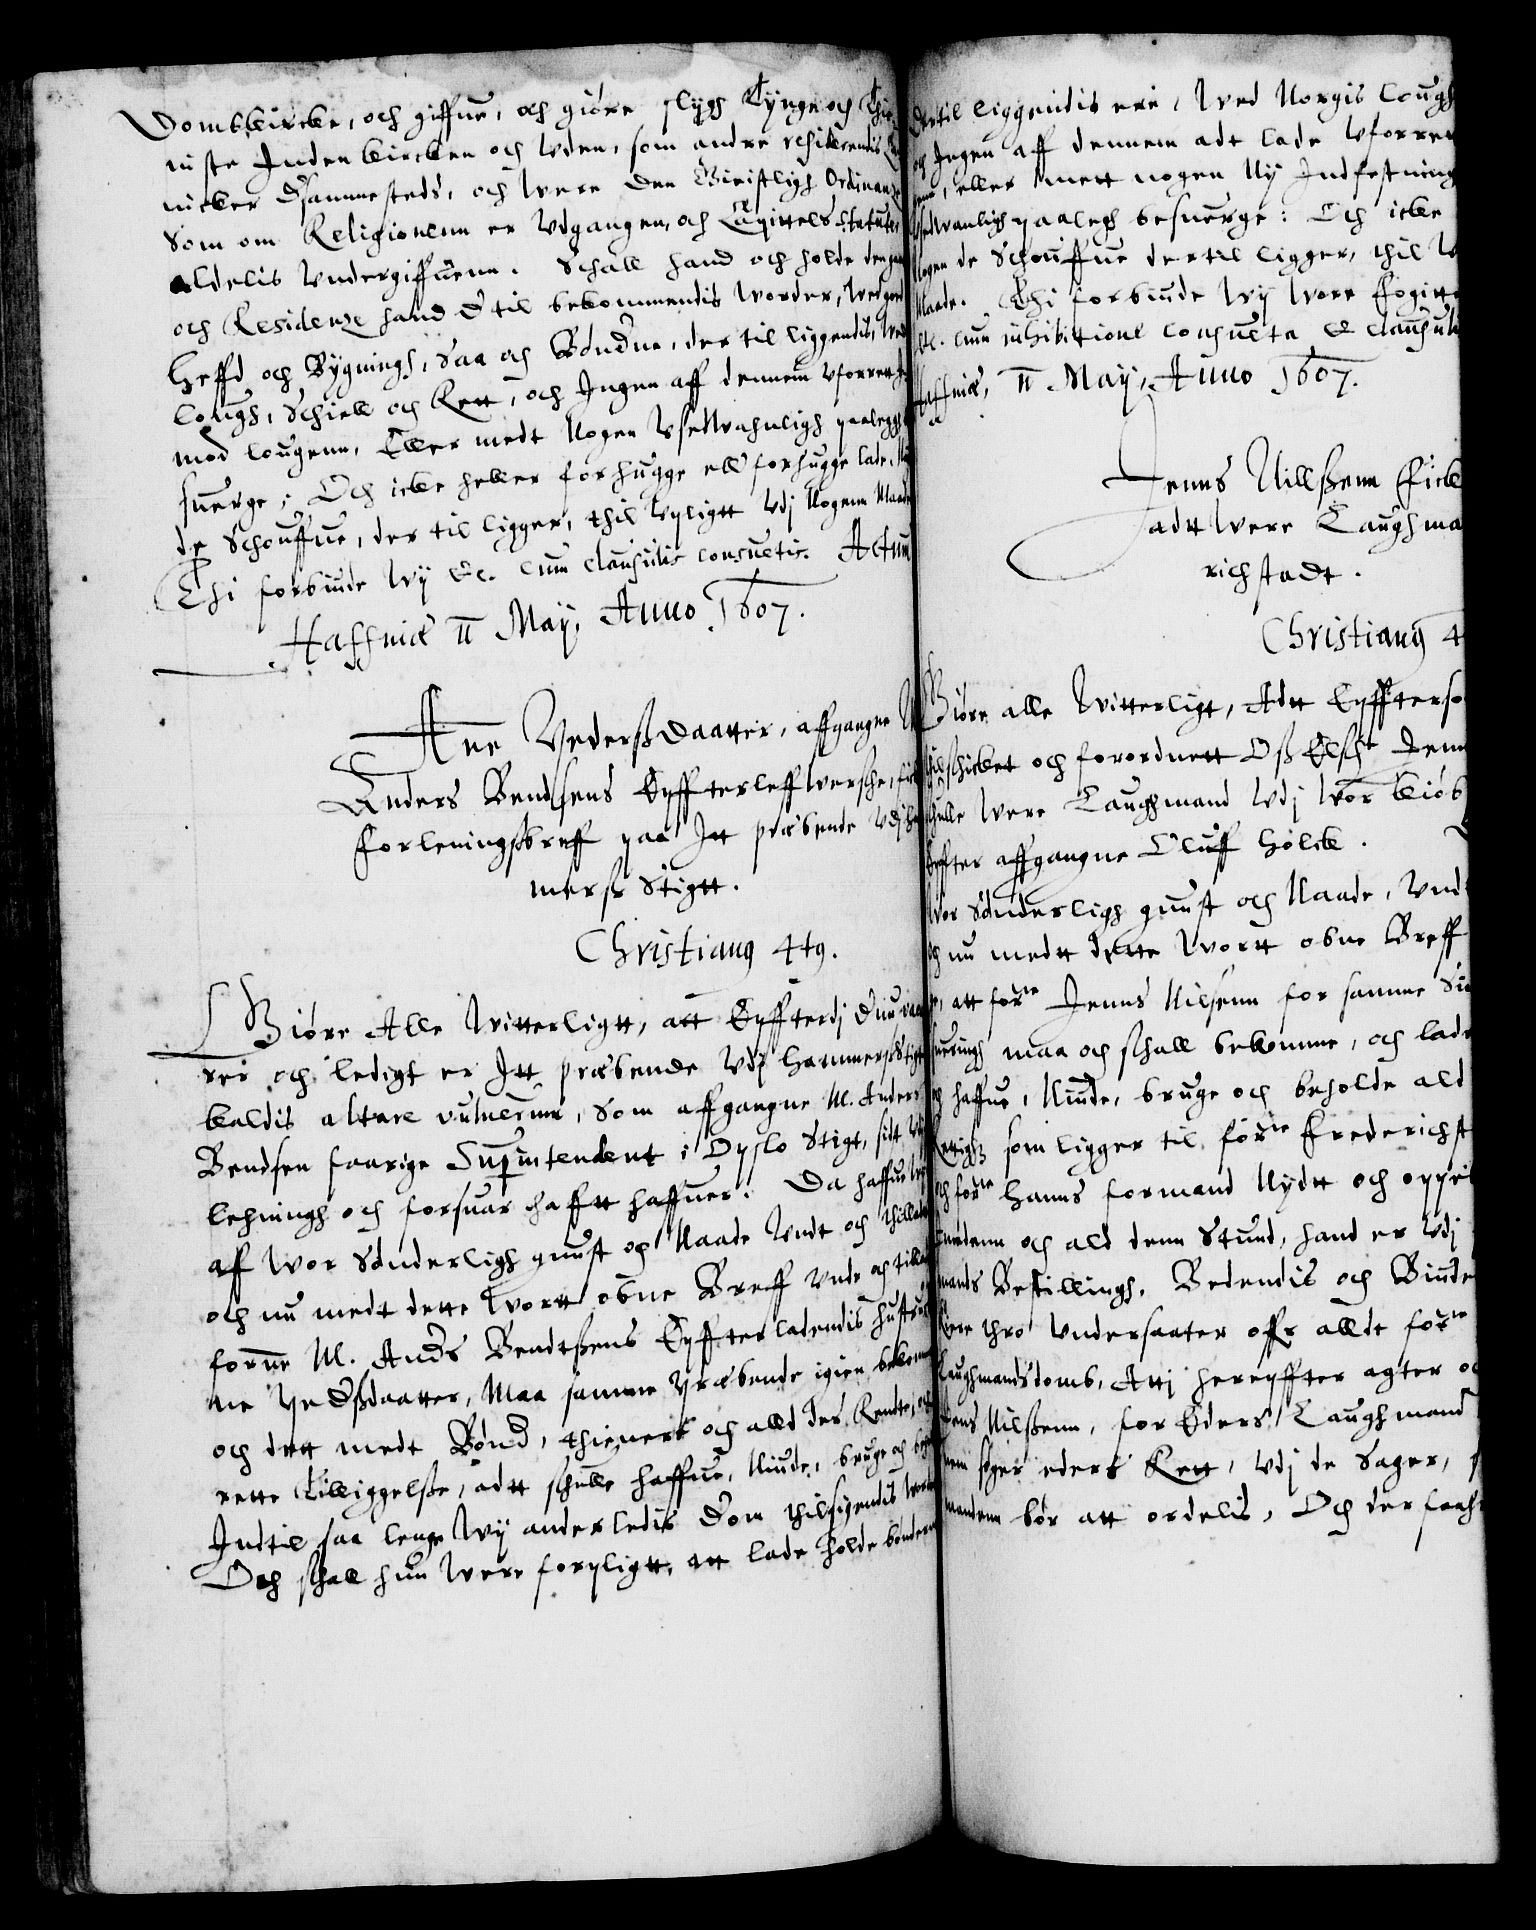 Domkircke, och giffue, och giøre slygh Tynge och Thie-
niste Inden kircken och Uden, som andre residerendis
nicker Dsammesteds, och were den Christligh Ordinantz
Som om Religionenn er Udgangen, och Capittels Statuter
aldelis Undergiffuenn. Schall hand och holde den gaard
och Residenze hand der til bekommendis worder, wed goed
Heffd och Bygningh, Saa och Bønderne, der til liggendis, wed
Lough, Schiell och Rett, och Ingen aff dennem Uforrett
mod Lougenn, Eller medt Nogen Usedwahnligh paalegh
suerge; Och icke heller forhugge eller forhugge lade,
de Schouffue, der til ligger, thil Upligtt Udj Nogenn Maade
Thi forbiude Wy &c. cum clausulis consuetis. Actum
Haffniæ 11 May, Anno 1607.
Ane Pedersdaatter, affgangne M
Anders Bendsens Effterleffwersche, fick
Forleningsbreff paa Itt præbende Udj Ha-
merss Stigtt.
Christianus 4tus.
Giøre Alle Witterligtt, att Effterdj
rer och ledigt er Itt præbende Udj Hammerss Stigtt
kaldis altare vulnerum, Som affgangne M. Anders
Bendsen faarige Superintendent i Opslo Stigt, sidst Udj
lehningh och forsuar hafftt haffuer. Da haffue Wy
aff wor Sønderligh gunst och Naade Undt och thilladt
och nu medt dette Wortt obne Breff Unde och tillade
forne M. Anders Bendtsens Effterladendis hustru
ne Pedersdaatter, Maa samme præbende igien bekomme
och dett medt Bønder, thienere och alld des Rendte, och
rette Tilliggelsse, adtt schulle haffue, Niude, bruge och beholde
Indtil saa lenge Wy anderledis Dom thilsigendis worder
Och schall hun were forpligtt, att lade holde bønderne
Dertil liggendis ere, wed Norgis Lough
och Ingen aff dennem adt lade Uforrett
eller mett nogen Ny Indfestning
Usedwanligh paalegh besuerge: Och icke
Nogen de Schouffue dertil ligger, thil U
Maade. Thi forbiude Wy Wore Fogitte
&c. cum inhibitione consueta & clausuli
Haffniæ, 11 May, Anno 1607.
Jenns Nillssenn Fick
adtt Were Laughma
richstadt.
Christianus 4
Giøre alle Witterligt, Adtt Effterso
thilschicket och forordnett Oss Elsche Jenn
schulle were Laughmand Udj Wor kiøb
Effter affgangne Oluff Holck.
Wor Sønderligh gunst och Naade, Und
och nu medtt dette Wortt obne Breff
att forne Jenns Nilssenn for samme
maa och schall bekomme, och lade
och haffue, Niude, bruge och beholde ald
Rettigh som ligger til forne Frederichst
och forne Hanns formand Nydtt och oppe
och ald denn Stund, hand er Udj
mands Bestillingh. Bedendis och Biude
Kiere thro Undersaater offr alldt forne
Laughmandsdomb, Attj hereffter agter oc
Jens Nilssenn, for Eders Laughmand
søger eders Rett, Udj de Sager,
mandenn bør att ordelis, Och derfaa